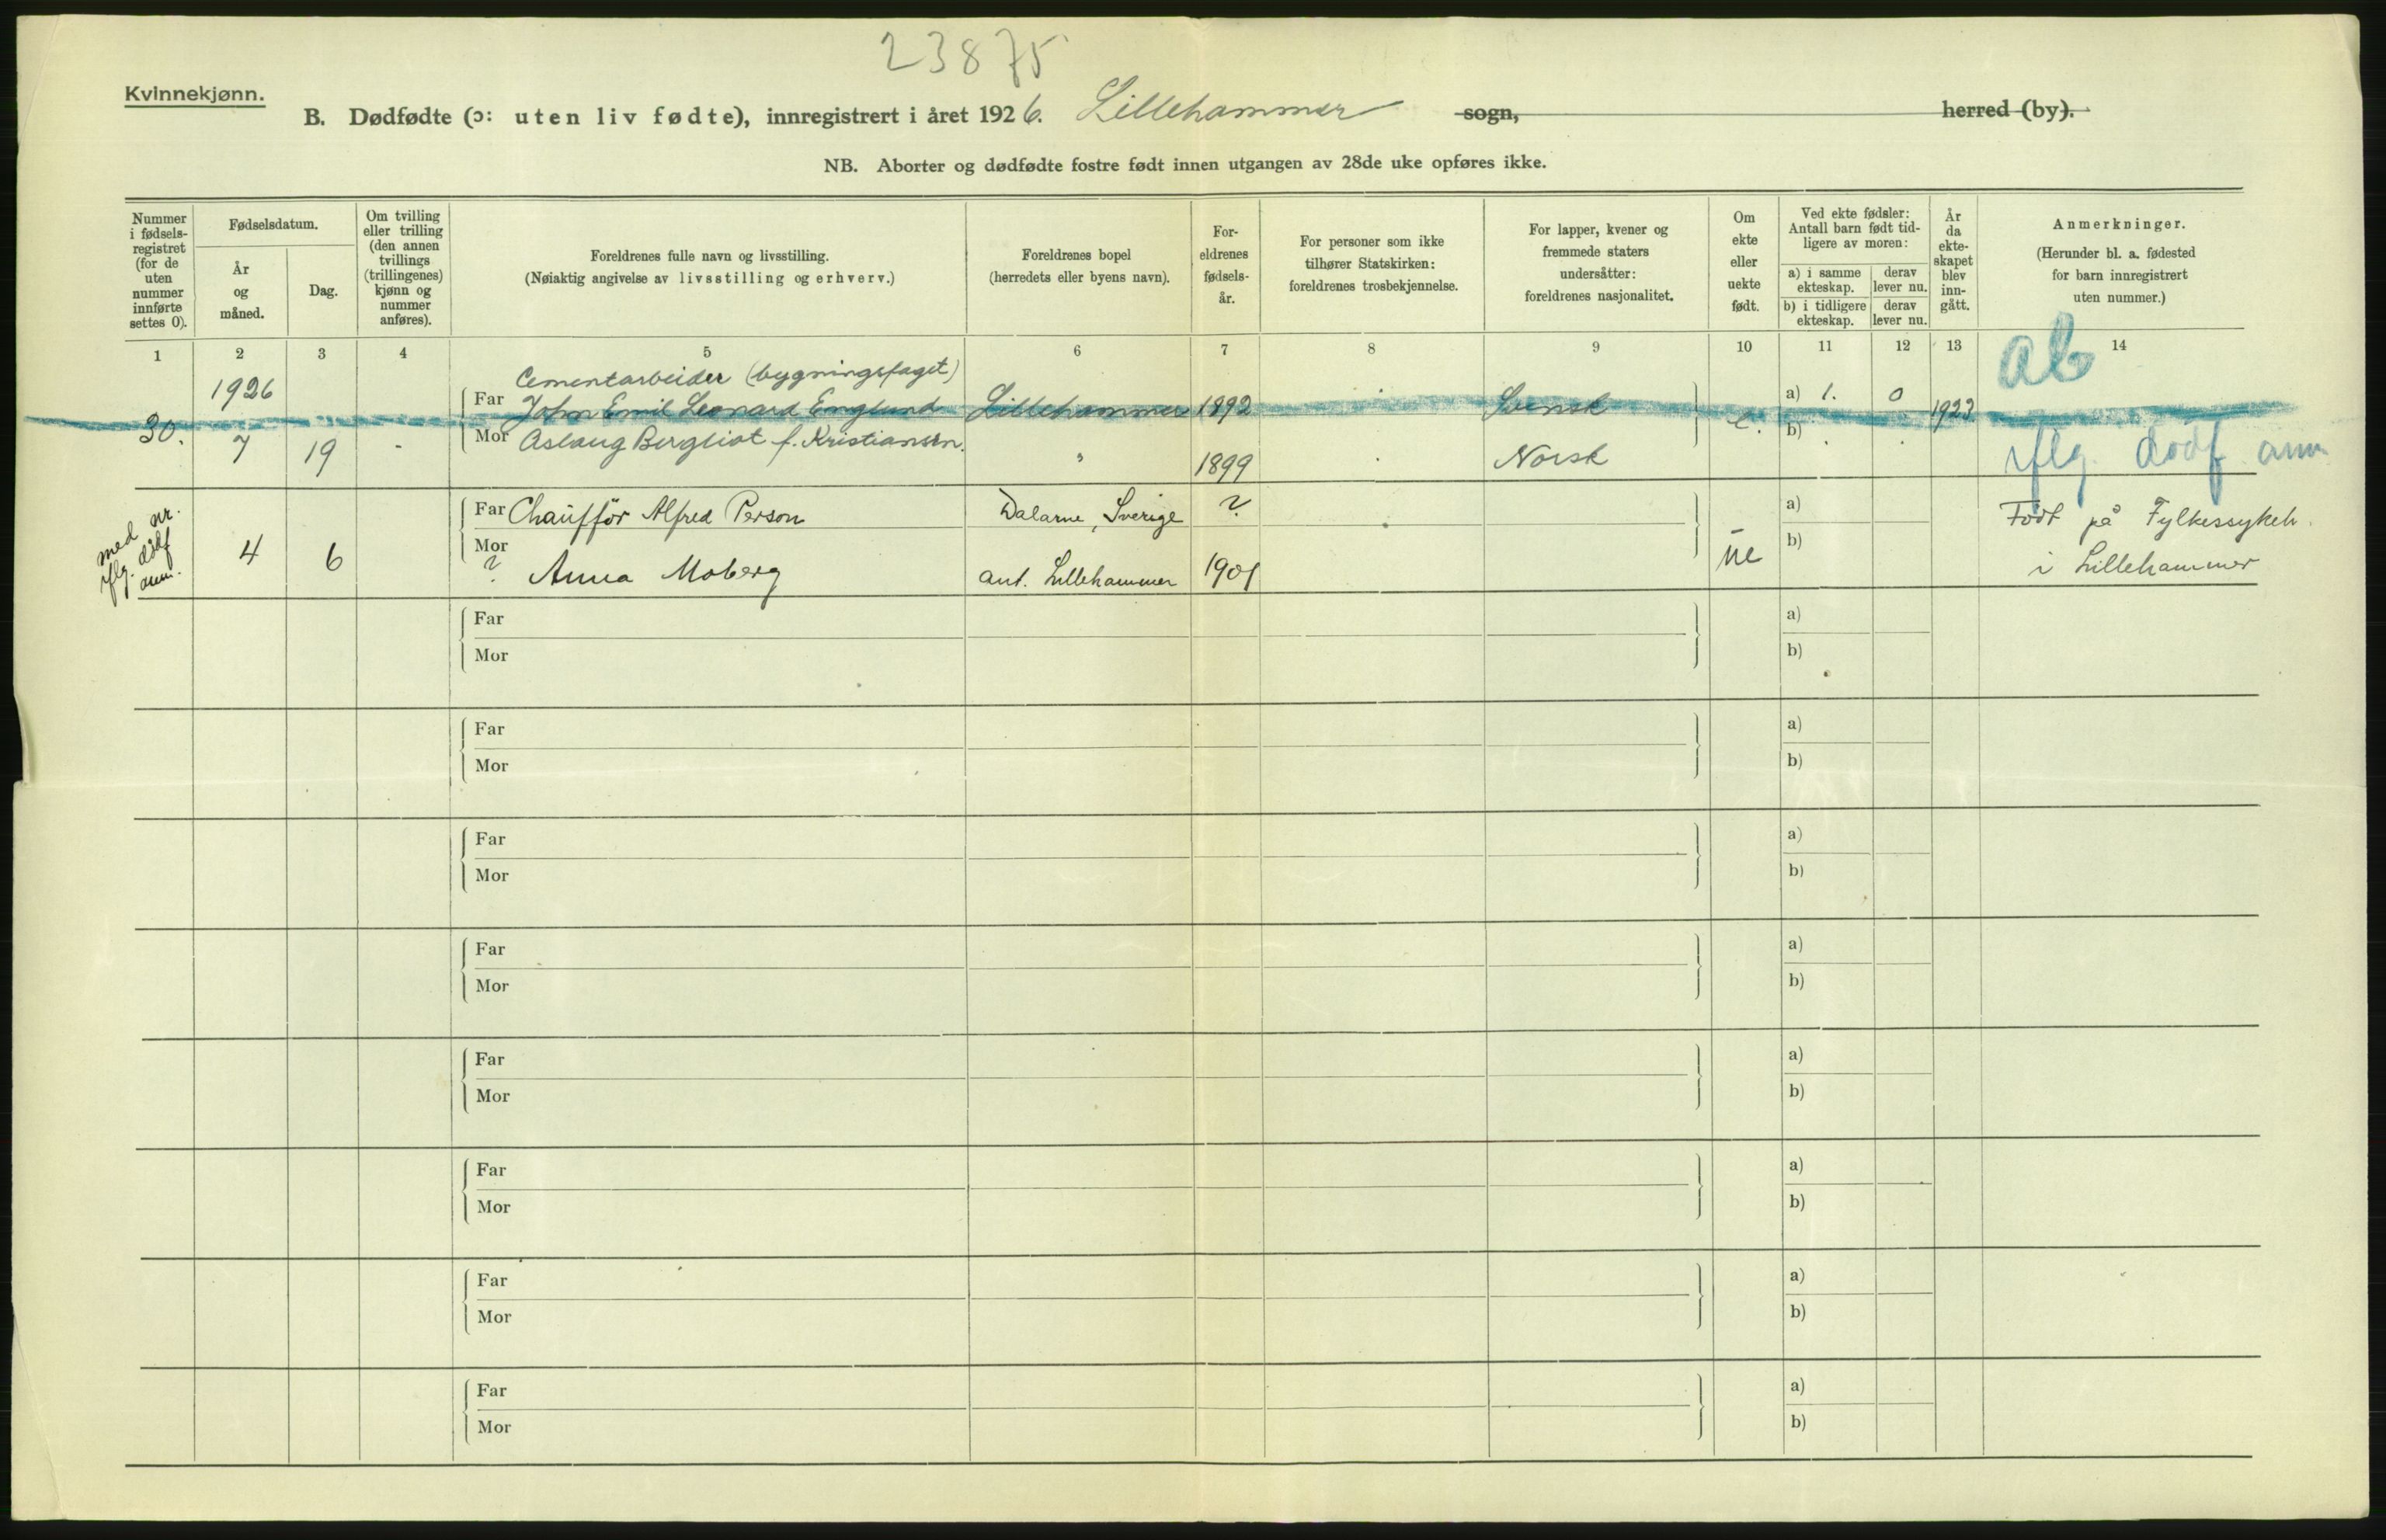 23875
Kvinnekjønn.
B. Dødfødte (ɔ: uten liv fødte), innregistrert i året 1926. Lillehammer sogn, herred (by).
NB. Aborter og dødfødte fostre født innen utgangen av 28de uke opføres ikke.
Nummer i fødsels-registret (for de uten nummer innførte settes 0).
Fødselsdatum.
År og måned.
Dag.
Om tvilling eller trilling (den annen tvillings (trillingenes) kjønn og nummer anføres).
Foreldrenes fulle navn og livsstilling.
(Nøiaktig angivelse av livsstilling og erhverv.)
Foreldrenes bopel
(herredets eller byens navn).
For-eldrenes fødsels-år.
For personer som ikke tilhører Statskirken: foreldrenes trosbekjennelse.
For lapper, kvener og fremmede staters undersåtter: foreldrenes nasjonalitet.
Om ekte eller uekte født.
Ved ekte fødsler: Antall barn født tid-ligere av moren:
a) i samme ekteskap. derav lever nu.
b) i tidligere ekteskap. derav lever nu.
År da ekte-skapet blev inn-gått.
Anmerkninger.
(Herunder bl. a. fødested for barn innregistrert uten nummer.)
1 2 3 4 5 6 7 8 9 10 11 12 13 14
Cementarbeider (bygningsfaget)
ab
1926 Far John Emil Leonard Englund Lillehammer 1892 Svensk a) 1. 0
30. e. 1923
7 19 - Mor Aslaug Bergliot f. Kristiansen. " 1899 Norsk b)
iflg dødf anm
med nr. iflg. dödf anm.
4 6 Far Chaufför Alfred Person Dalarne, Sverige ? a)
Mor ? Anna Moberg ant. Lillehammer 1901 ue b)
Født på Fylkessykeh.
i Lillehammer
Far a)
Mor b)
Far a)
Mor b)
Far a)
Mor b)
Far a)
Mor b)
Far a)
Mor b)
Far a)
Mor b)
Far a)
Mor b)
Far a)
Mor b)